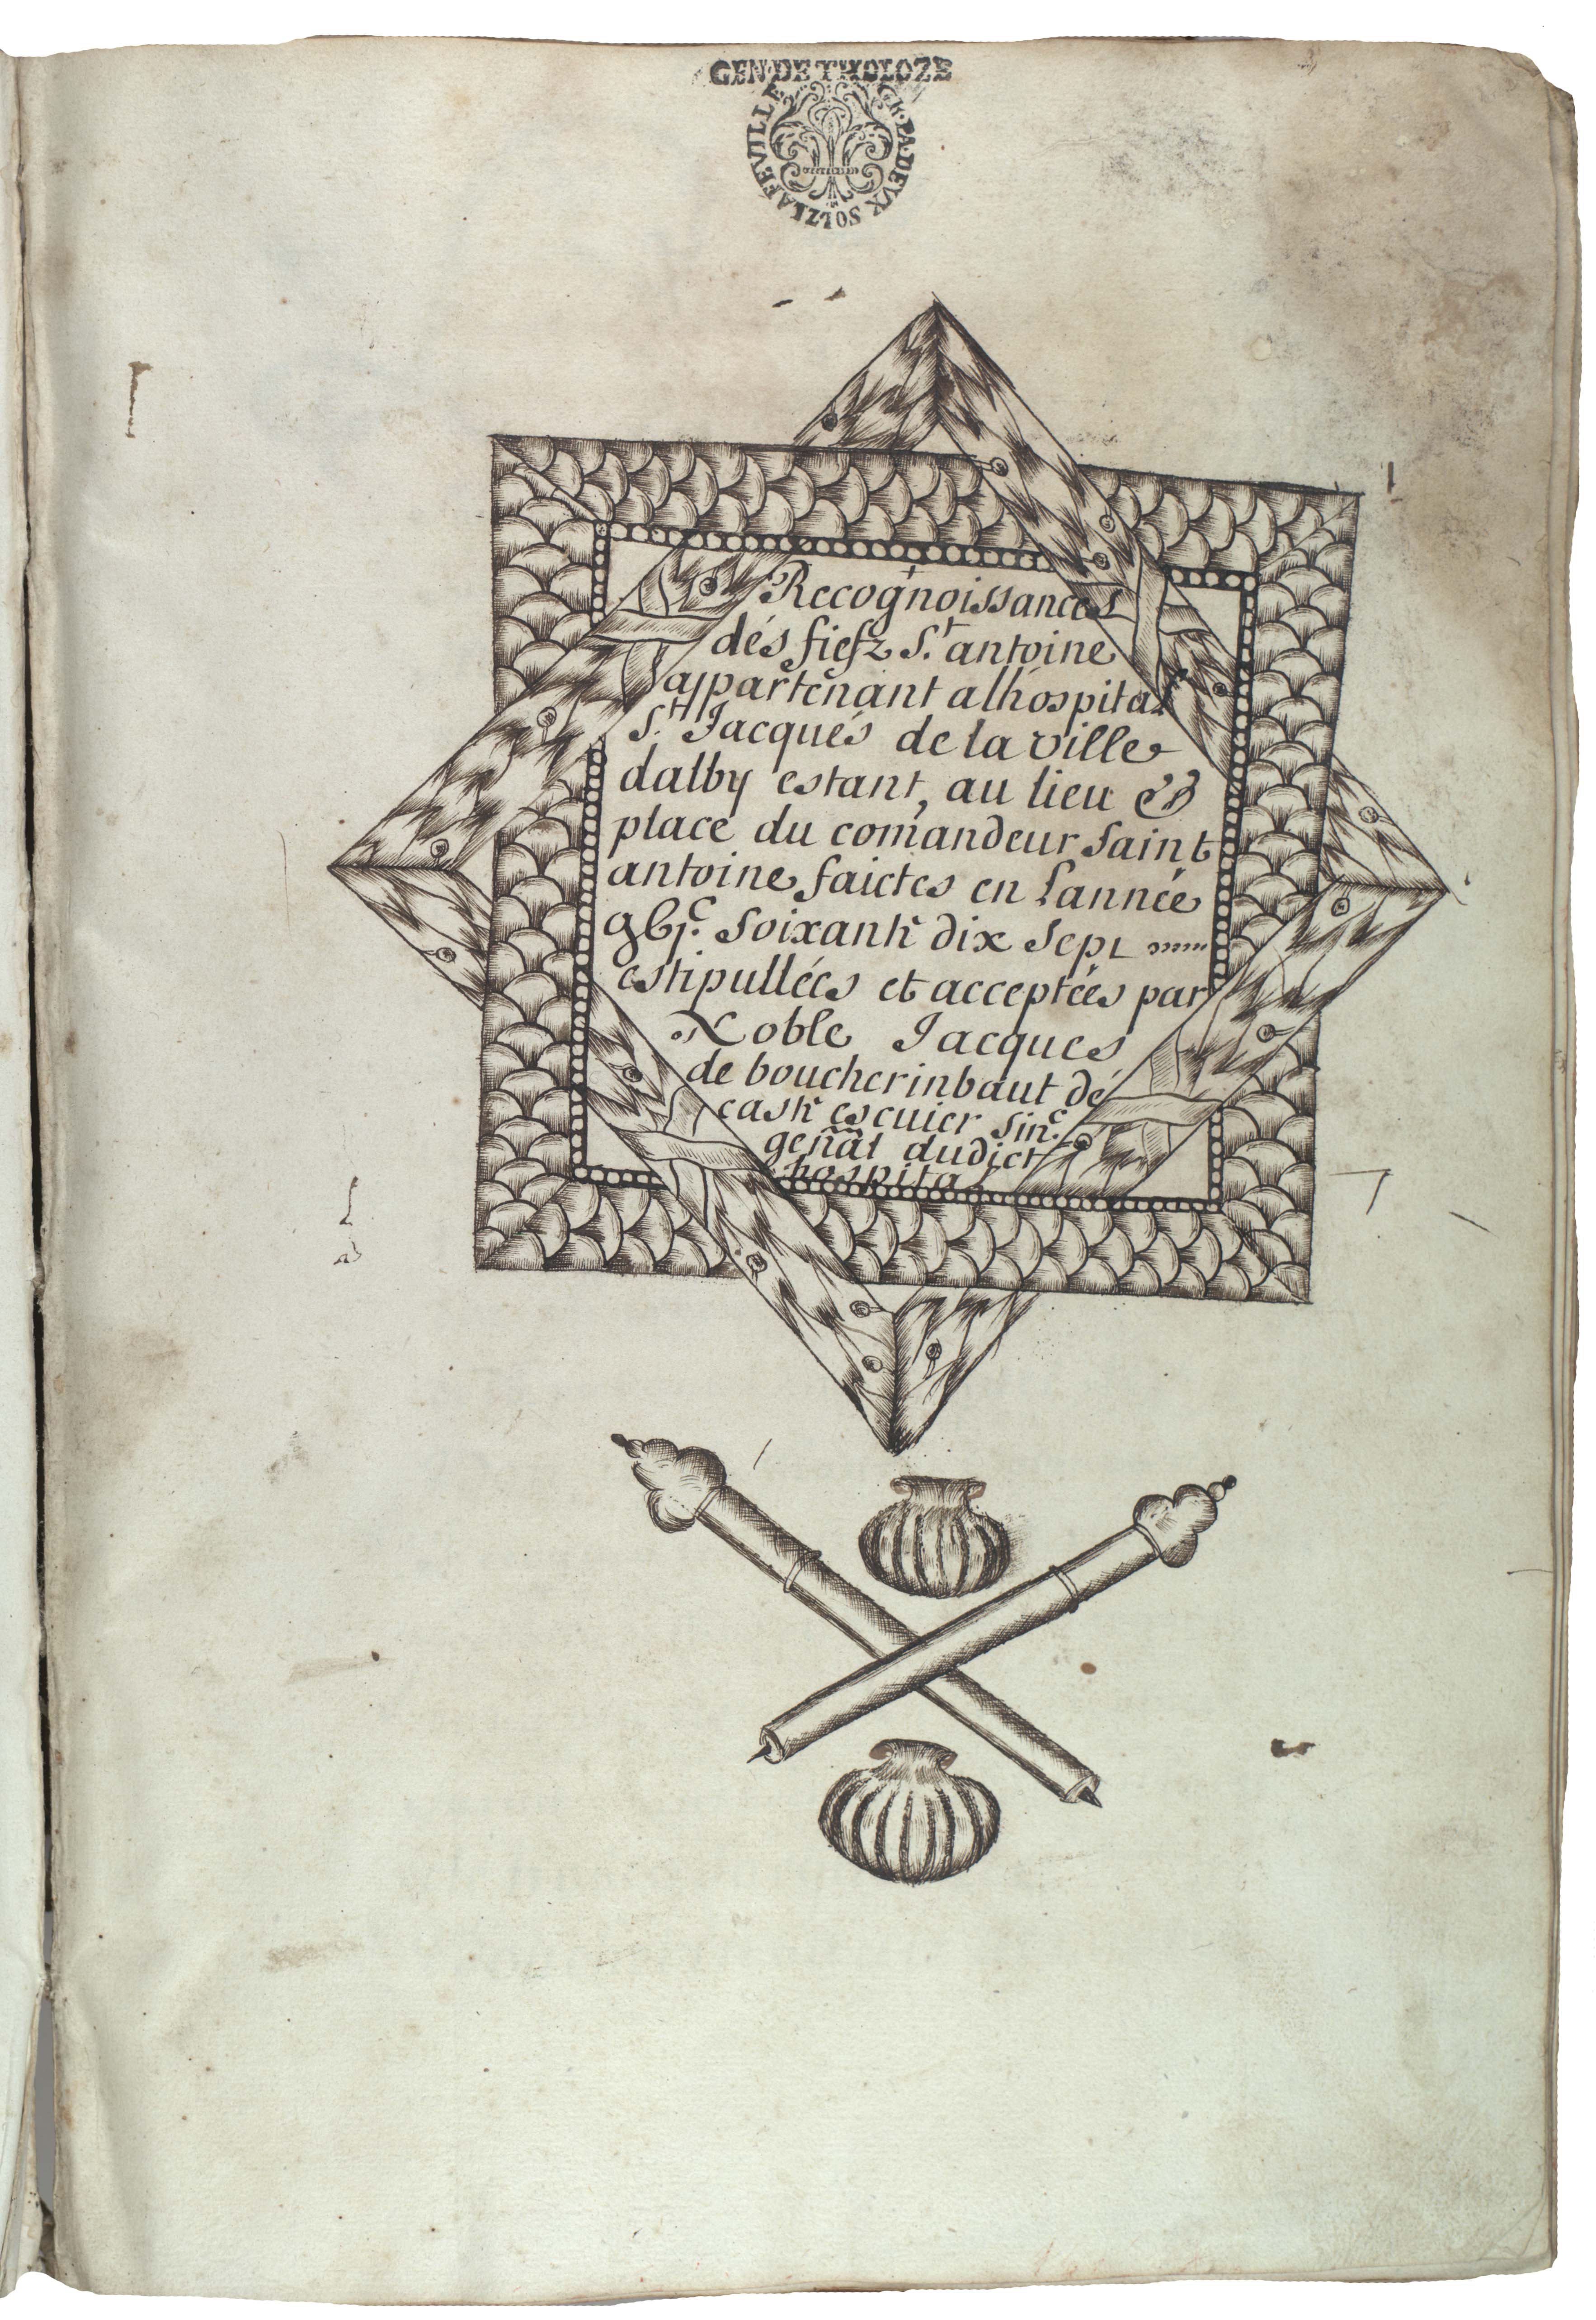 GEN·DE THOLOZE
LA FEVILLE
DEVX SOLZ
Recognoissances
dés fiefz S.t antoine
appartenant alhospital
S.t Jacqués de la ville
dalby estant, au lieu &
place du comandeur saint
antoine faictes en Lannée
gbj.c soixante dix sept
estipullées et acceptées par
Noble Jacques
de boucherinbaut dé
caste escuier sin.c
geñãl dudict
hospital